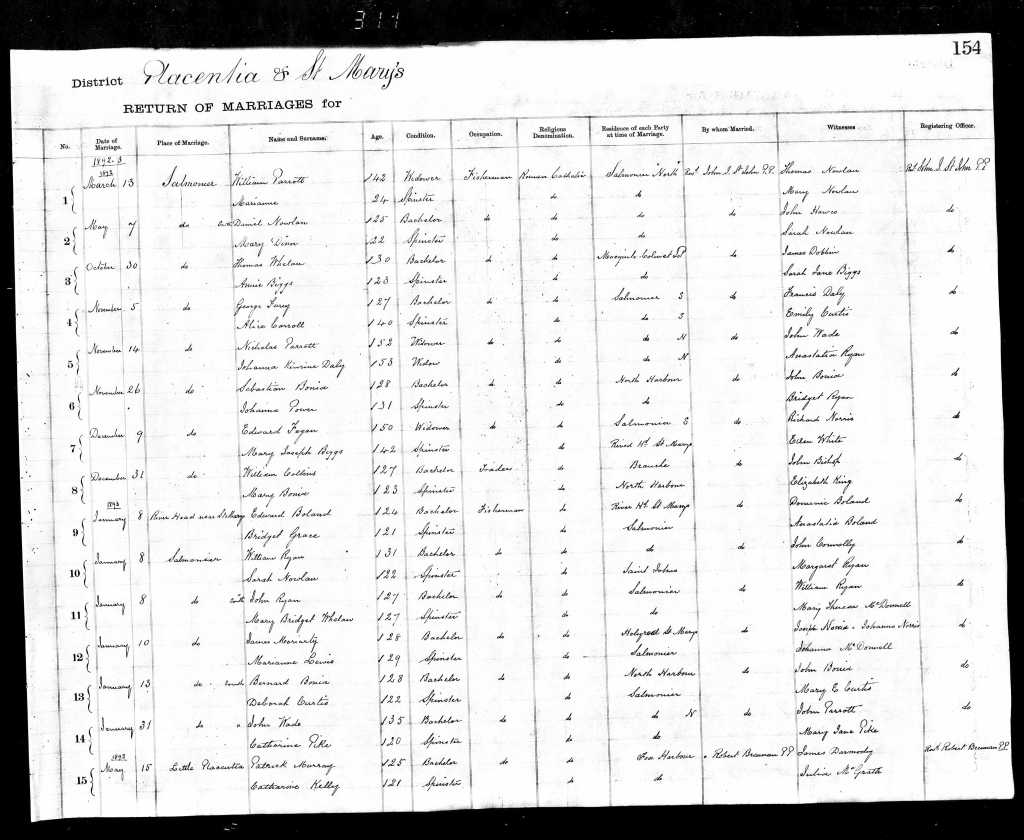 311
154
District Placentia & St Mary's
RETURN OF MARRIAGES for
No. Date of Marriage. Place of Marriage. Name and Surname. Age. Condition. Occupation. Religious Denomination. Residence of each Party at time of Marriage. By whom Married. Witnesses Registering Officer.
1892.3
1 March 13 Salmonier William Parrott 42 Widower Fisherman Roman Catholic Salmonier North Revd John J. St John P.P. Thomas Nowlan Revd John J. St John P.P.
Marianne 24 Spinster do do Mary Nowlan
2 May 7 do Daniel Nowlan 25 Bachelor do do do do John Hawco do
Mary Dinn 22 Spinster do do Sarah Nowlan
3 October 30 do Thomas Whelan 30 Bachelor do do do James Dobbin do
Annie Biggs 23 Spinster do do Sarah Jane Biggs
4 November 5 do George Furey 27 Bachelor do do Salmonier S do Francis Daly do
Alice Carroll 40 Spinster do do S Emily Curtis
5 November 14 do Nicholas Parrott 52 Widower do do do N do John Wade do
Johanna Daly 53 Widow do do N Anastatia Ryan
6 November 26 do Sebastian Bonia 28 Bachelor do do North Harbour do John Bonia do
Johanna Power 31 Spinster do do Bridget Ryan
7 December 9 do Edward Fagan 50 Widower do do Salmonier do Richard Norris do
Mary Joseph Biggs 42 Spinster do River Hd St Marys Ellen White
8 December 31 do William Collins 27 Bachelor Trader do Branche do John Bishop do
Mary Bonia 23 Spinster do North Harbour Elizabeth King
1893
9 January 8 River Head near St Marys Edward Boland 24 Bachelor Fisherman do River Hd St Marys do Dominic Boland do
Bridget Grace 21 Spinster do Salmonier Anastatia Boland
10 January 8 Salmonier William Ryan 31 Bachelor do do do do John Connolly do
Sarah Nowlan 22 Spinster do Saint Johns Margaret Ryan
11 January 8 do John Ryan 27 Bachelor do do Salmonier do William Ryan do
Mary Bridget Whelan 27 Spinster do do Mary Theresa McDonnell
12 January 10 do James Moriarty 28 Bachelor do do Holyrood St Marys do Joseph Norris Johanna Norris do
Marianne Lewis 29 Spinster do Salmonier Johanna McDonnell
13 January 13 do Bernard Bonia 28 Bachelor do do North Harbour do John Bonia do
Deborah Curtis 22 Spinster do Salmonier Mary E Curtis
14 January 31 do " John Wade 35 Bachelor do do do N do John Parrott do
Catharine Pike 20 Spinster do do Mary Jane Pike
15 May 15 Little Placentia Patrick Murray 25 Bachelor do do Fox Harbour " Robert Brennan P.P. James Darmody Revd Robert Brennan P.P.
Catharine Kelly 21 Spinster do do Julia McGrath